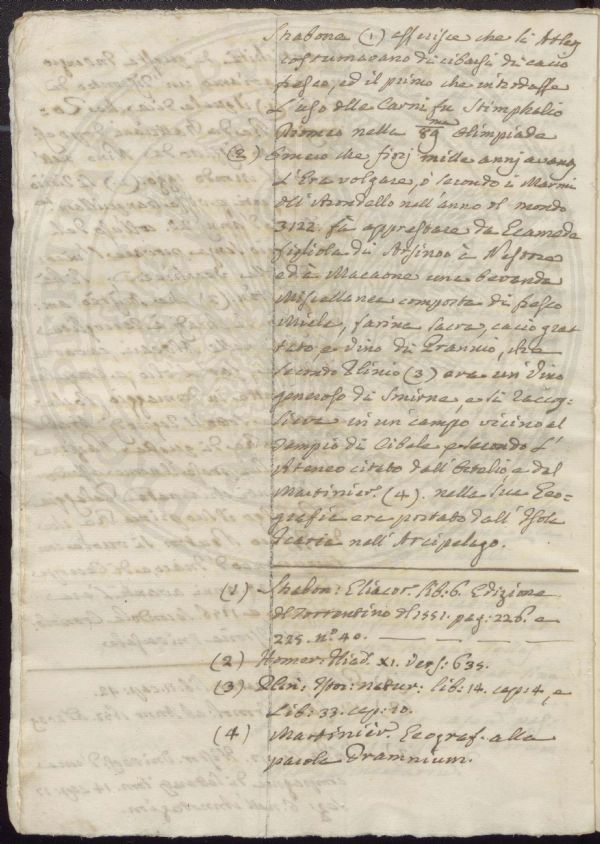 Strabone (1) asserisce che li Atleti
costumavano di cibarsi di cacio
fresco, ed il primo che introdusse
l'uso della Carni fu Stimphalio
Dromeo nella 89 Olimpiade
(2) Omero che fiorj mille annj avanj
l'Era volgare, ò secondo i Marmi
dell'Arondello nell'anno del mondo
3122. fà appressare da Ecameda
figliola di Arsinoo à Nestore
ed à Macaone una bevanda
Miscellanea composta di fresco
Miele, farina sacra, cacio grat
tato, e vino di Prannio, che
secondo Plinio (3) era un Vino
generoso di Smirne, e si raccog=
lieva in un campo vicino al
Tempio di Cibele e secondo l'
Ateneo citato dall' e dal
Martinier. (4). nella sua Geo=
grafia era portato dall'Isola
Icaria nell'Arcipelago.
(1) Strabon: Eliacor. lib: 6. Edizione
del Torrentino del 1551. pag: 226. e
225. n.° 40.
(2) Homer: Iliad. XI. vers: 635.
(3) Plin: Istor: natur: lib: 14. cap: 4, e
Lib: 33. cap: 10.
(4) Martinier. Geograf. alla
parola Pramnium.